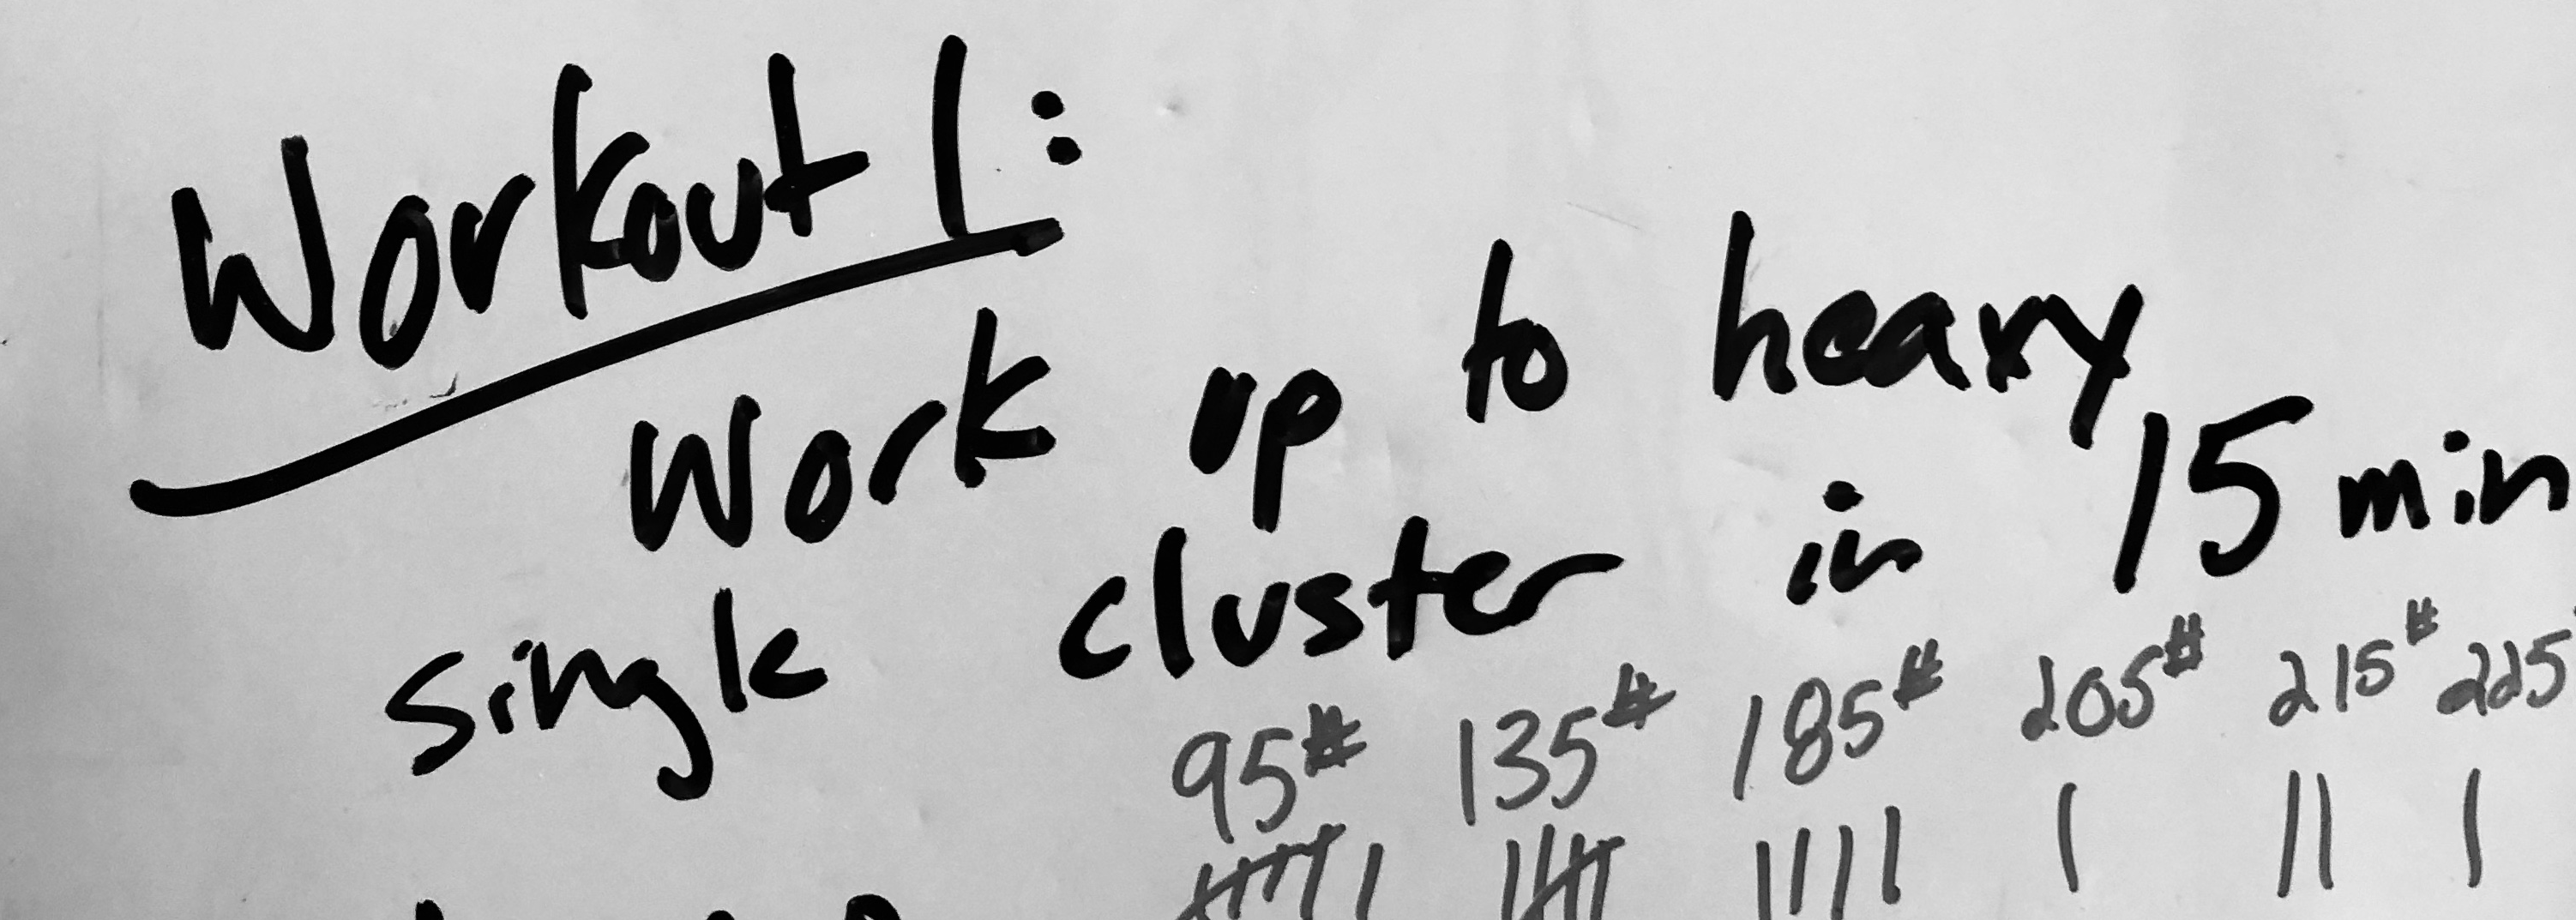 Workout 1:
Work up to heavy
single cluster in 15 min
95# 135# 185# 205# 215# 225